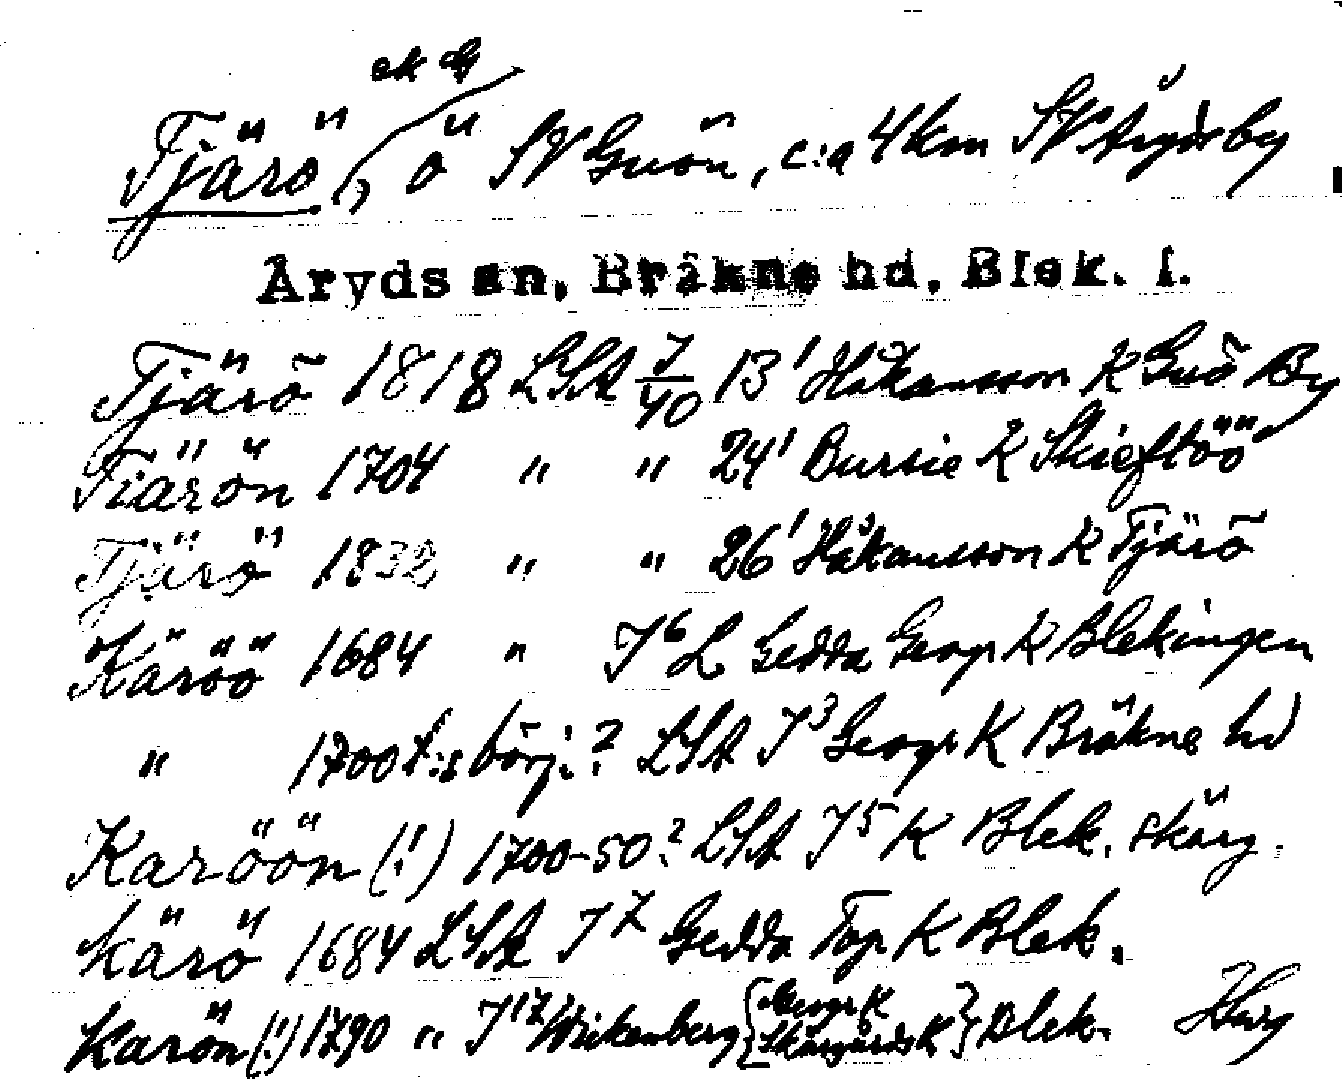 ek G
Tjärö, ö SV Guön, c:a 4 km SV Åryds by
Åryds sn, Bräkne hd, Blek. l.
Tjärö 1818 LSA 7/40 13' Håkansson K Guö By
Tiärön 1704 " " 24' Bursie K Skieftöö
Tjärö 1832 " " 26' Håkansson K Tjärö
Käröö 1684 " J6 L Gedda Geogr K Blekingen
" 1700 t:s börj.? LSA J3 Geogr K Bräkne hd
Karöön (!) 1700-50? LSA J5 K Blek. skärg.
Kärö 1684 LSA J7 Gedda Top K Blek.
Karön (!) 1790 " J17 Wirkenberg {Geogr K Skärgårds K} Blek.